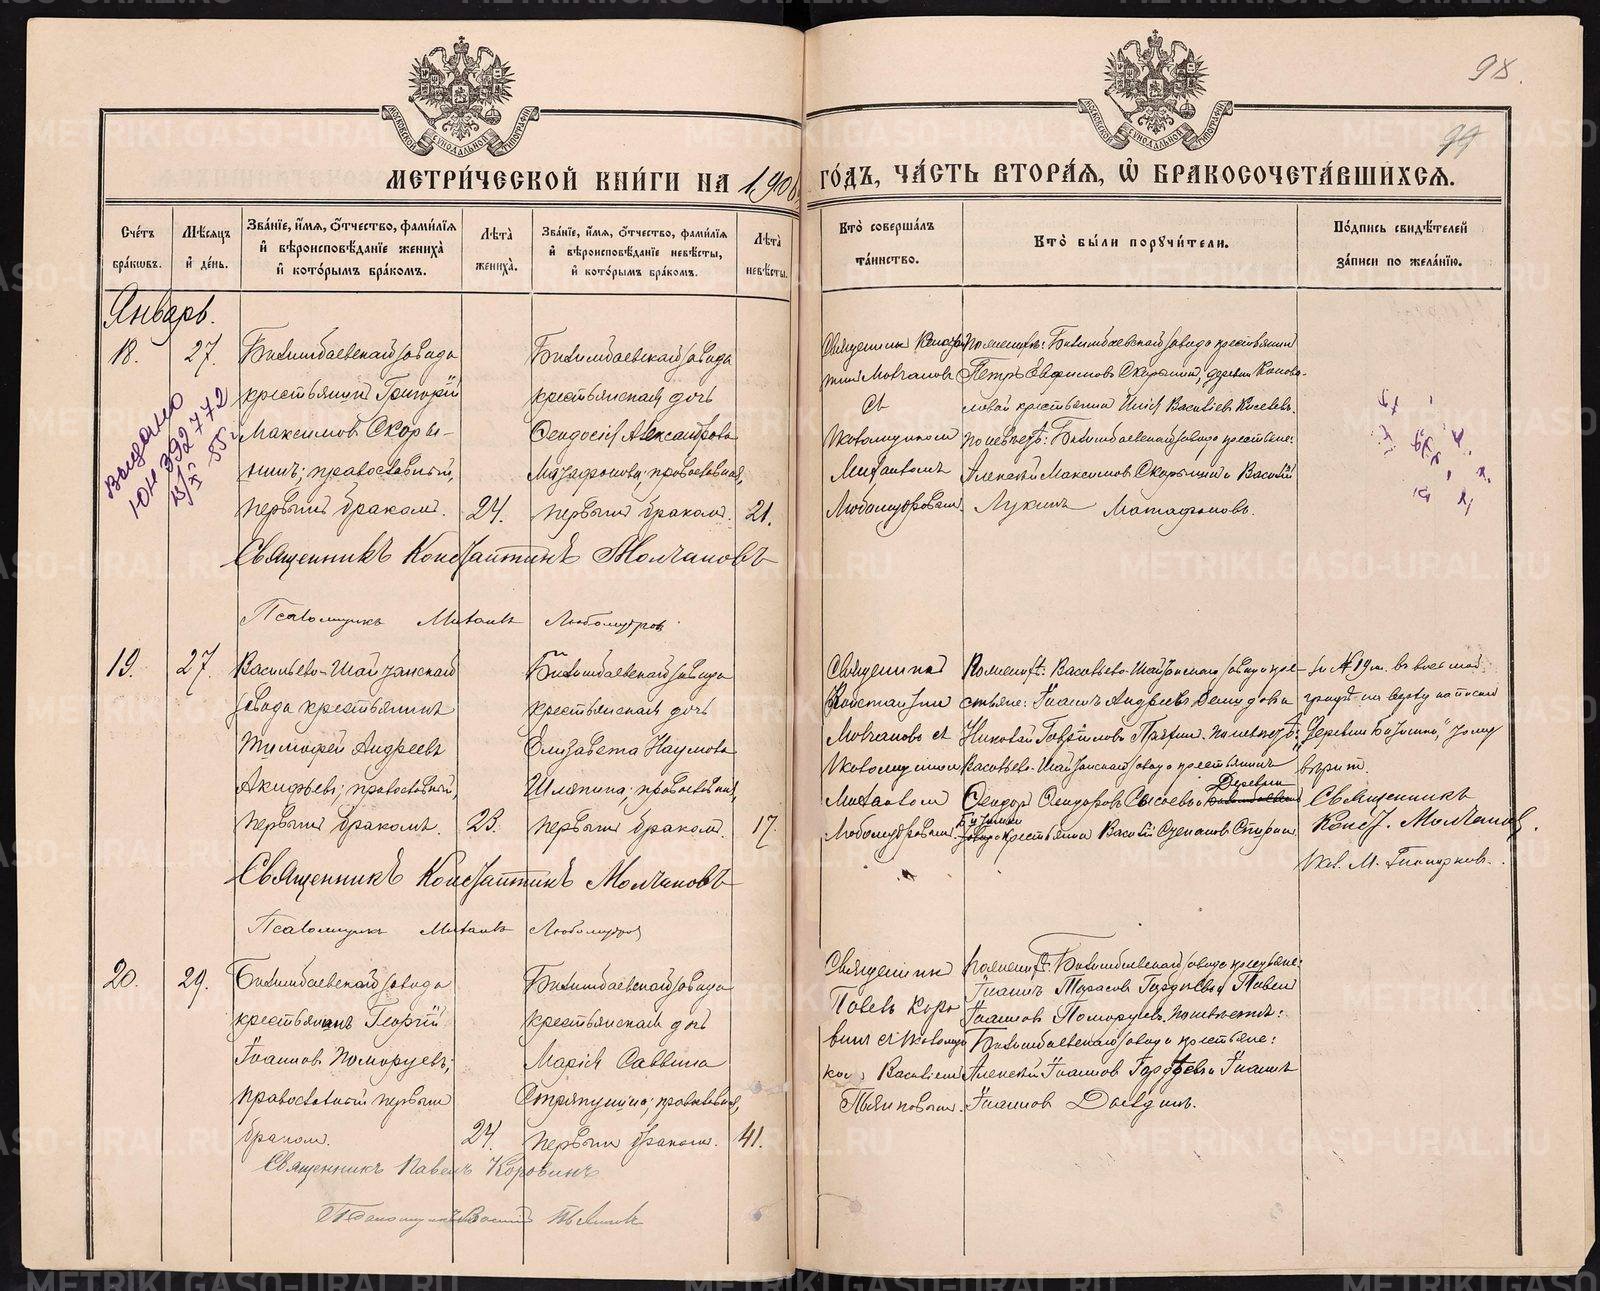 98.
99
МОСКОВСКОЙ СѴНОДАЛЬНОЙ ТИПОГРАФІИ
МОСКОВСКОЙ СѴНОДАЛЬНОЙ ТИПОГРАФІИ
МЕТРИ́ЧЕСКОЙ КНИ́ГИ НА 1906 ГО́ДЪ, ЧА́СТЬ ВТОРА́Я, Ѡ҆ БРАКОСОЧЕТА́ВШИХСЯ.
Сче́тъ бра́кѡвъ.
Мѣ́сяцъ и҆ де́нь.
Зва́нїе, и҆́мя, ѻ҆́тчество, фами́лїя и҆ вѣроисповѣ́данїе жениха̀ и҆ кото́рымъ бра́комъ.
Лѣ́та жениха̀.
Зва́нїе, и҆́мя, ѻ҆́тчество, фами́лїя и҆ вѣроисповѣ́данїе невѣ́сты, и҆ кото́рымъ бра́комъ.
Лѣ́та невѣ́сты.
Кто̀ соверша́лъ та́инство.
Кто̀ бы́ли порꙋчи́тели.
По́дпись свидѣ́телей за́писи по жела́нїю.
Январь.
18.
27.
Билимбаевскаго завода
крестьянинъ Григорій
Максимовъ Скоры-
нинъ; православный,
первымъ бракомъ.
24.
Билимбаевскаго завода
крестьянская дочь
Феодосія Александрова
православная,
первымъ бракомъ.
21.
Священникъ
Молчановъ
съ
псаломщикомъ
Михаиломъ
Любомудровымъ.
По женихѣ: Билимбаевскаго завода крестьянинъ
Петръ Скорынинъ, деревни Коново-
ловой крестьянинъ Васильевъ
по невѣстѣ: Билимбаевскаго завода крестьяне:
Алексѣй Максимовъ Скорынинъ и Василій
Лукинъ Матафоновъ.
Выдано
ЮН 392772
13/X 55 г
Священникъ Константинъ Молчановъ
Псаломщикъ Михаилъ Любомудровъ
19.
27.
Васильево-Шайтанскаго
завода крестьянинъ
Тимофей Андреевъ
православный,
первымъ бракомъ.
23.
Билимбаевскаго завода
крестьянская дочь
Елизавета Наумова
Шляпина; православная,
первымъ бракомъ.
17.
Священникъ
Константинъ
Молчановъ съ
псаломщикомъ
Михаиломъ
Любомудровымъ.
По женихѣ: Васильево-Шайтанскаго завода кре-
стьяне: Іоаннъ Андреевъ Демидовъ и
Николай Гавріиловъ по невѣстѣ:
Васильево-Шайтанскаго завода крестьянинъ
Феодоръ Феодоровъ Сысоевъ и Деревни
крестьянинъ Василій
въ № 19 м. въ восьмой
графѣ по написано
„Деревни
вѣрить.
Священникъ
Конст. Молчановъ.
Пс. М.
Священникъ Константинъ Молчановъ
Псаломщикъ Михаилъ Любомудровъ
20.
29.
Билимбаевскаго завода
крестьянинъ Георгій
Іоанновъ Поморцевъ;
православный первымъ
бракомъ.
24.
Билимбаевскаго завода
крестьянская дочь
Марія Саввина
православная,
первымъ бракомъ.
41.
Священникъ
Павелъ Коро
винъ съ псаломщи
комъ Василіемъ
По женихѣ: Билимбаевскаго завода крестьяне:
Іоаннъ Тарасовъ Гордѣевъ и Павелъ
Іоанновъ Поморцевъ. по невѣстѣ:
Билимбаевскаго завода крестьяне:
Алексѣй Іоанновъ Гордѣевъ и Іоаннъ
Іоанновъ
Священникъ Павелъ Коровинъ
Псаломщикъ Василій